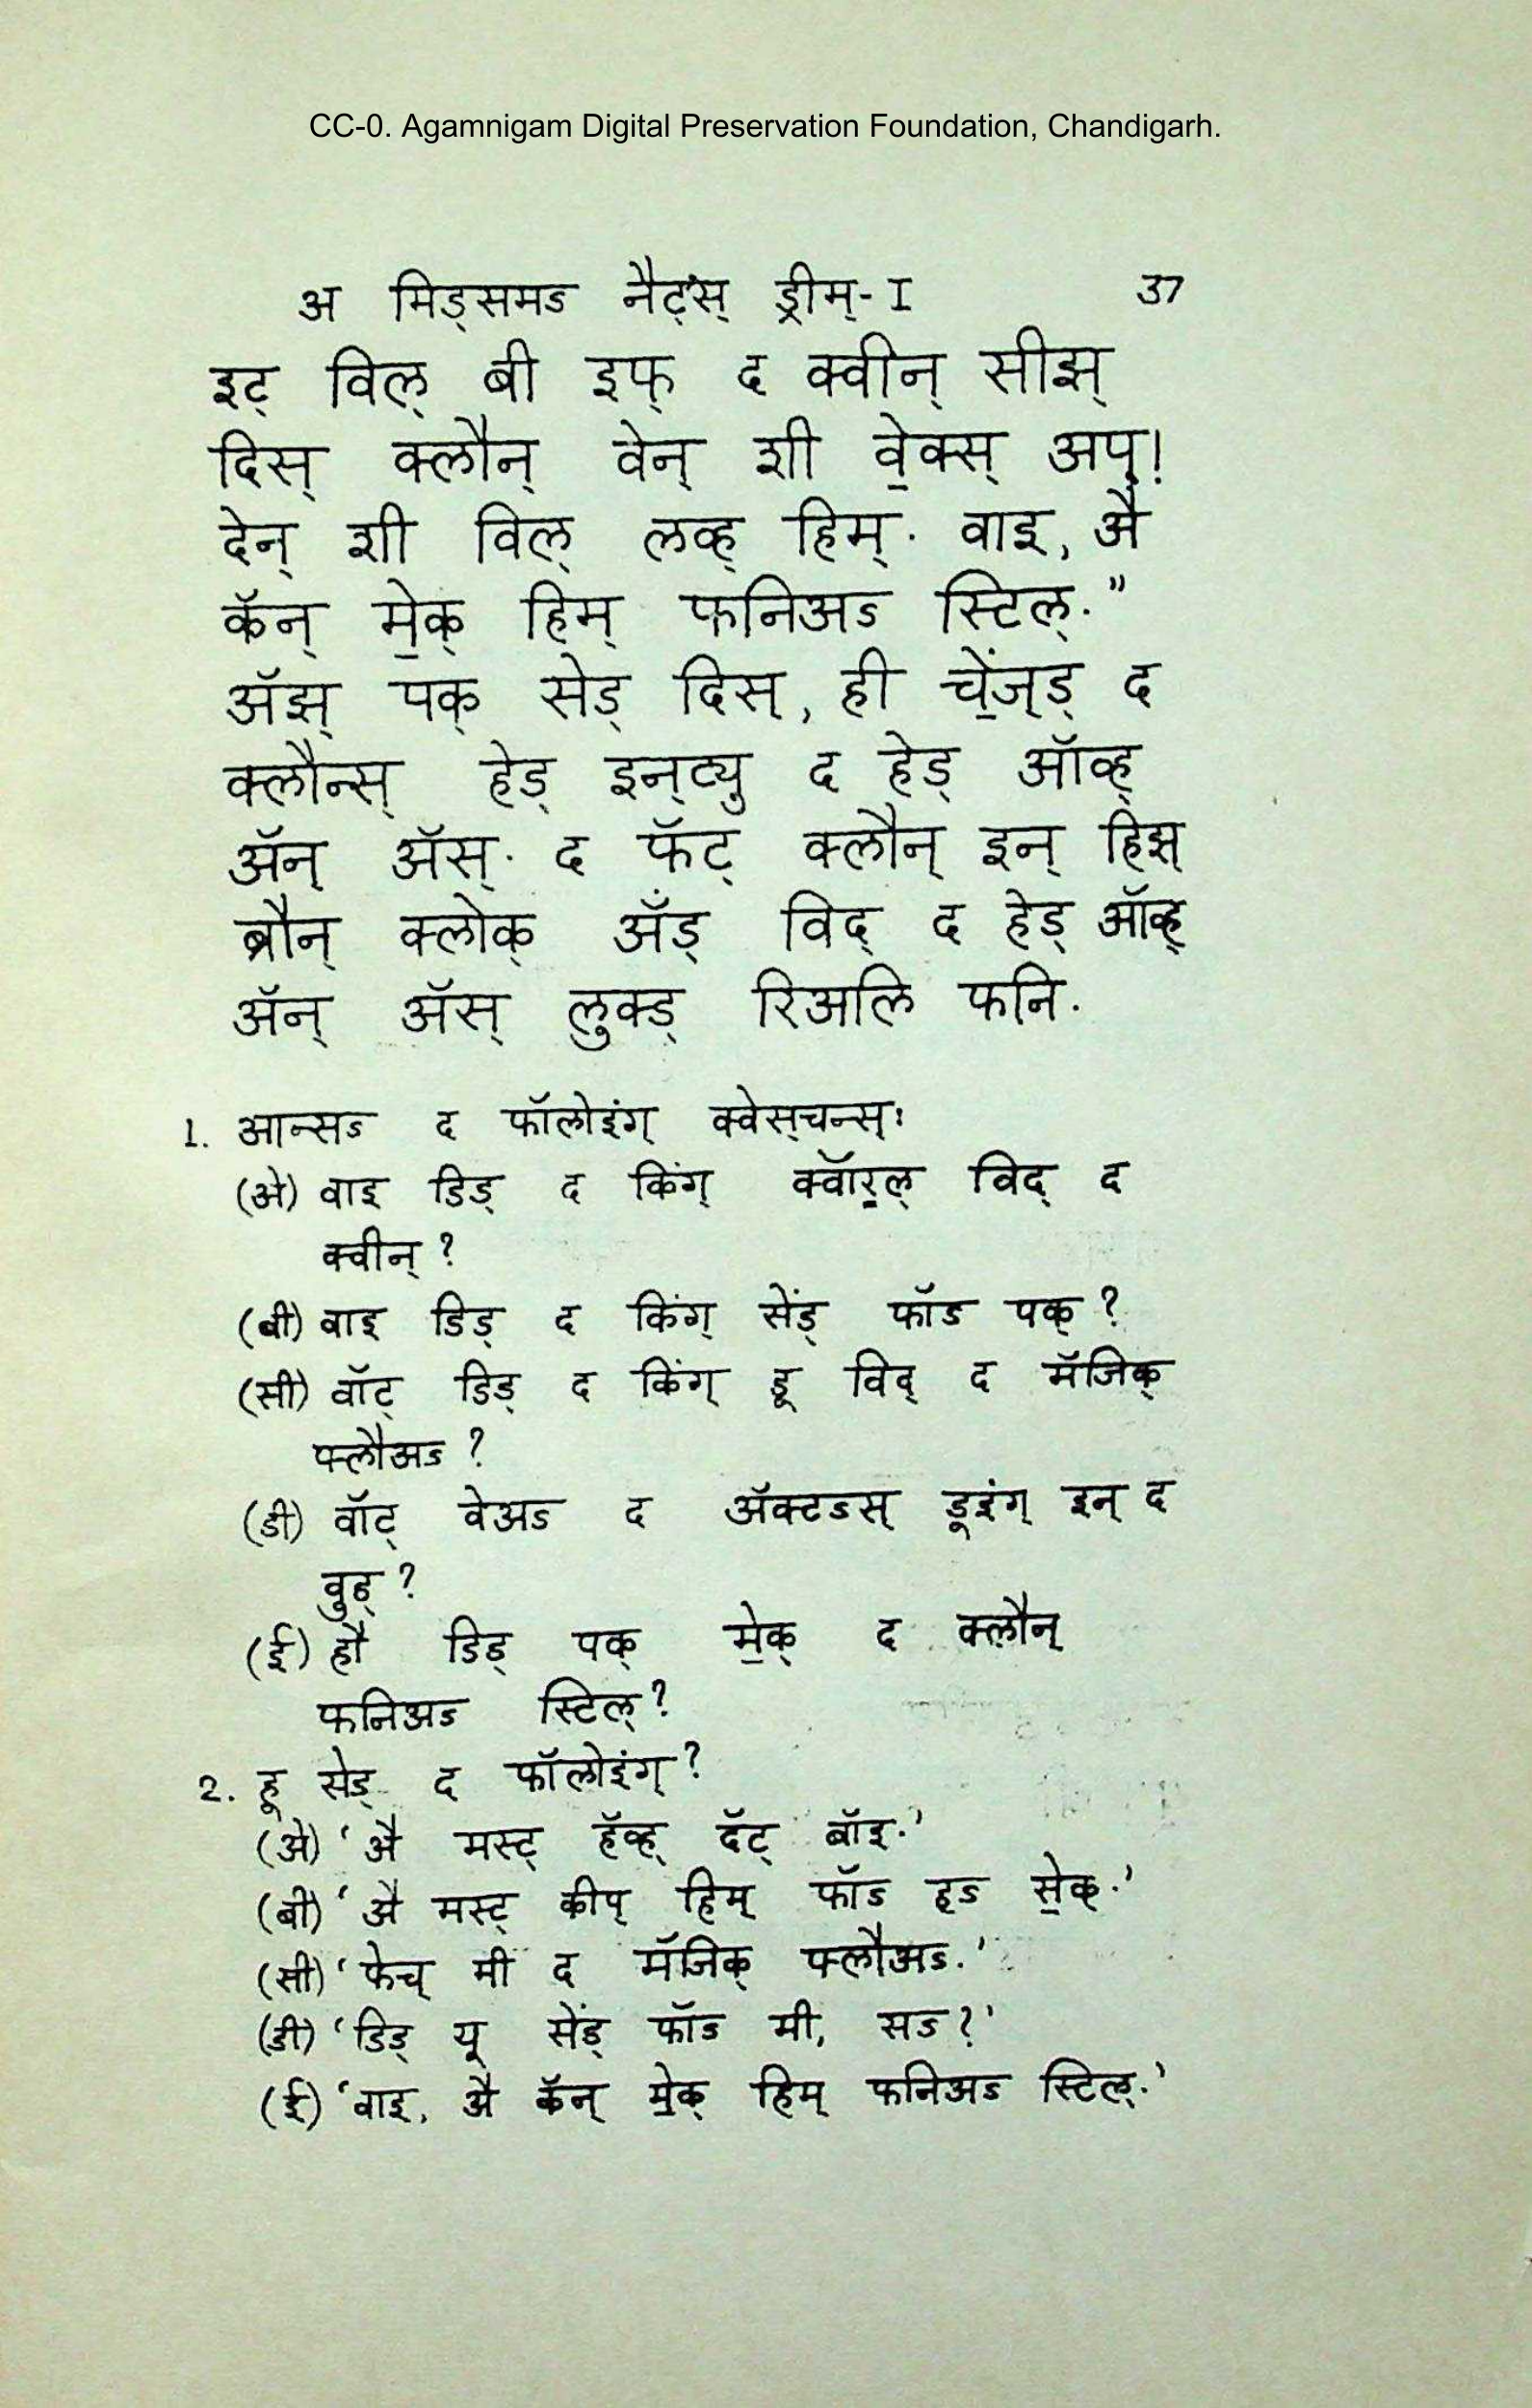 CC-0. Agamnigam Digital Preservation Foundation, Chandigarh.
अ मिड्समऽ नैट्'स् ड्रीम्-I 37
इट् विल् बी इफ् द क्वीन् सीझ्
दिस् क्लौन् वेन् शी वे॒क्स् अप्!
देन् शी विल् लव्ह् हिम्. वाइ, अै
कॅन् मे॒क् हिम् फनिअऽ स्टिल्."
अ‍ॅझ् पक् सेड् दिस्, ही चें॒ज्ड् द
क्लौन्स् हेड् इन्ट्यु द हेड् ऑव्ह्
अ‍ॅन् अ‍ॅस्. द फॅट् क्लौन् इन् हिझ्
ब्रौन् क्लोक् अ‍ॅंड् विद् द हेड् ऑव्ह्
अ‍ॅन् अ‍ॅस् लुक्ड् रिअलि फनि.
1. आन्सऽ द फॉलोइंग् क्वेस्चन्स्:
(अे) वाइ डिड् द किंग् क्वॉर॒ल् विद् द
क्वीन् ?
(बी) वाइ डिड् द किंग् सेंड् फॉऽ पक् ?
(सी) वॉट् डिड् द किंग् डू विद् द मॅजिक्
फ्लौअऽ ?
(डी) वॉट् वेअऽ द अ‍ॅक्टऽस् डूइंग् इन् द
वुड् ?
(ई) हौ डिड् पक् मे॒क् द क्लौन्
फनिअऽ स्टिल् ?
2. हू सेड् द फॉलोइंग् ?
(अे) 'अै मस्ट् हॅव्ह् दॅट् बॉइ.'
(बी) 'अै मस्ट् कीप् हिम् फॉऽ हऽ से॒क्.'
(सी) 'फेच् मी द मॅजिक् फ्लौअऽ.'
(डी) 'डिड् यू सेंड् फॉऽ मी, सऽ ?'
(ई) 'वाइ, अै कॅन् मे॒क् हिम् फनिअऽ स्टिल्.'